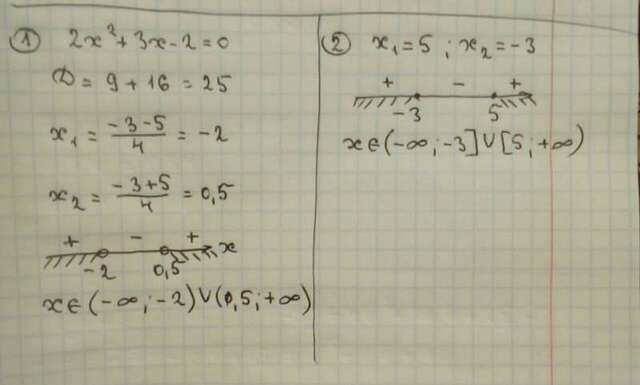 ① 2x²+3x-2=0
D = 9+16 = 25
x₁ = (-3-5)/4 = -2
x₂ = (-3+5)/4 = 0,5
+ - + x
-2 0,5
x∈(-∞;-2)∪(0,5;+∞)
② x₁=5 ; x₂=-3
+ - +
-3 5
x∈(-∞;-3]∪[5;+∞)